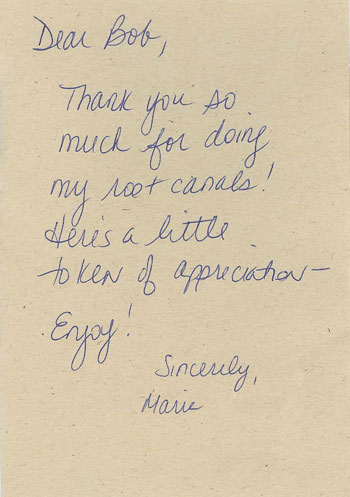 Dear Bob,
Thank you so
much for doing
my root canals!
Here's a little
token of appreciation—
Enjoy!
Sincerely,
Marie